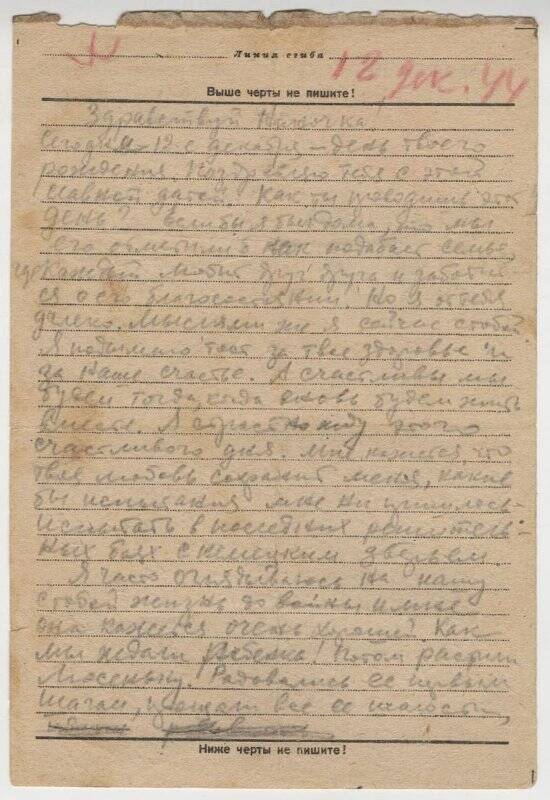 Линия сгиба
12 дек. 44
Выше черты не пишите!
Здравствуй Ниночка
Сегодня 12е декабря – день твоего
рождения. Поздравляю тебя с этой
славной датой. Как ты проводишь этот
день? Если бы я был дома, то мы
его отметили как подобает семье,
где каждый любит друг друга и заботит
ся о его благосостоянии. Но я от тебя
далеко. Мыслями же я сейчас с тобой
Я поднимаю тост за твое здоровье и
за наше счастье. А счастливы мы
будем тогда, когда вновь будем жить
вместе. Я страстно жду этого
счастливого дня. Мне кажется, что
твоя любовь сохранит меня, какие
бы испытания мне ни пришлось
испытать в последних решитель-
ных боях с немецким зверьем.
Я часто оглядываюсь на нашу
с тобой жизнь до войны и мне
она кажется очень хорошей. Как
мы ждали ребенка! Потом растили
Люсеньку. Радовались ее первым
шагам, прощали все ее шалости,
Ниже черты не пишите!